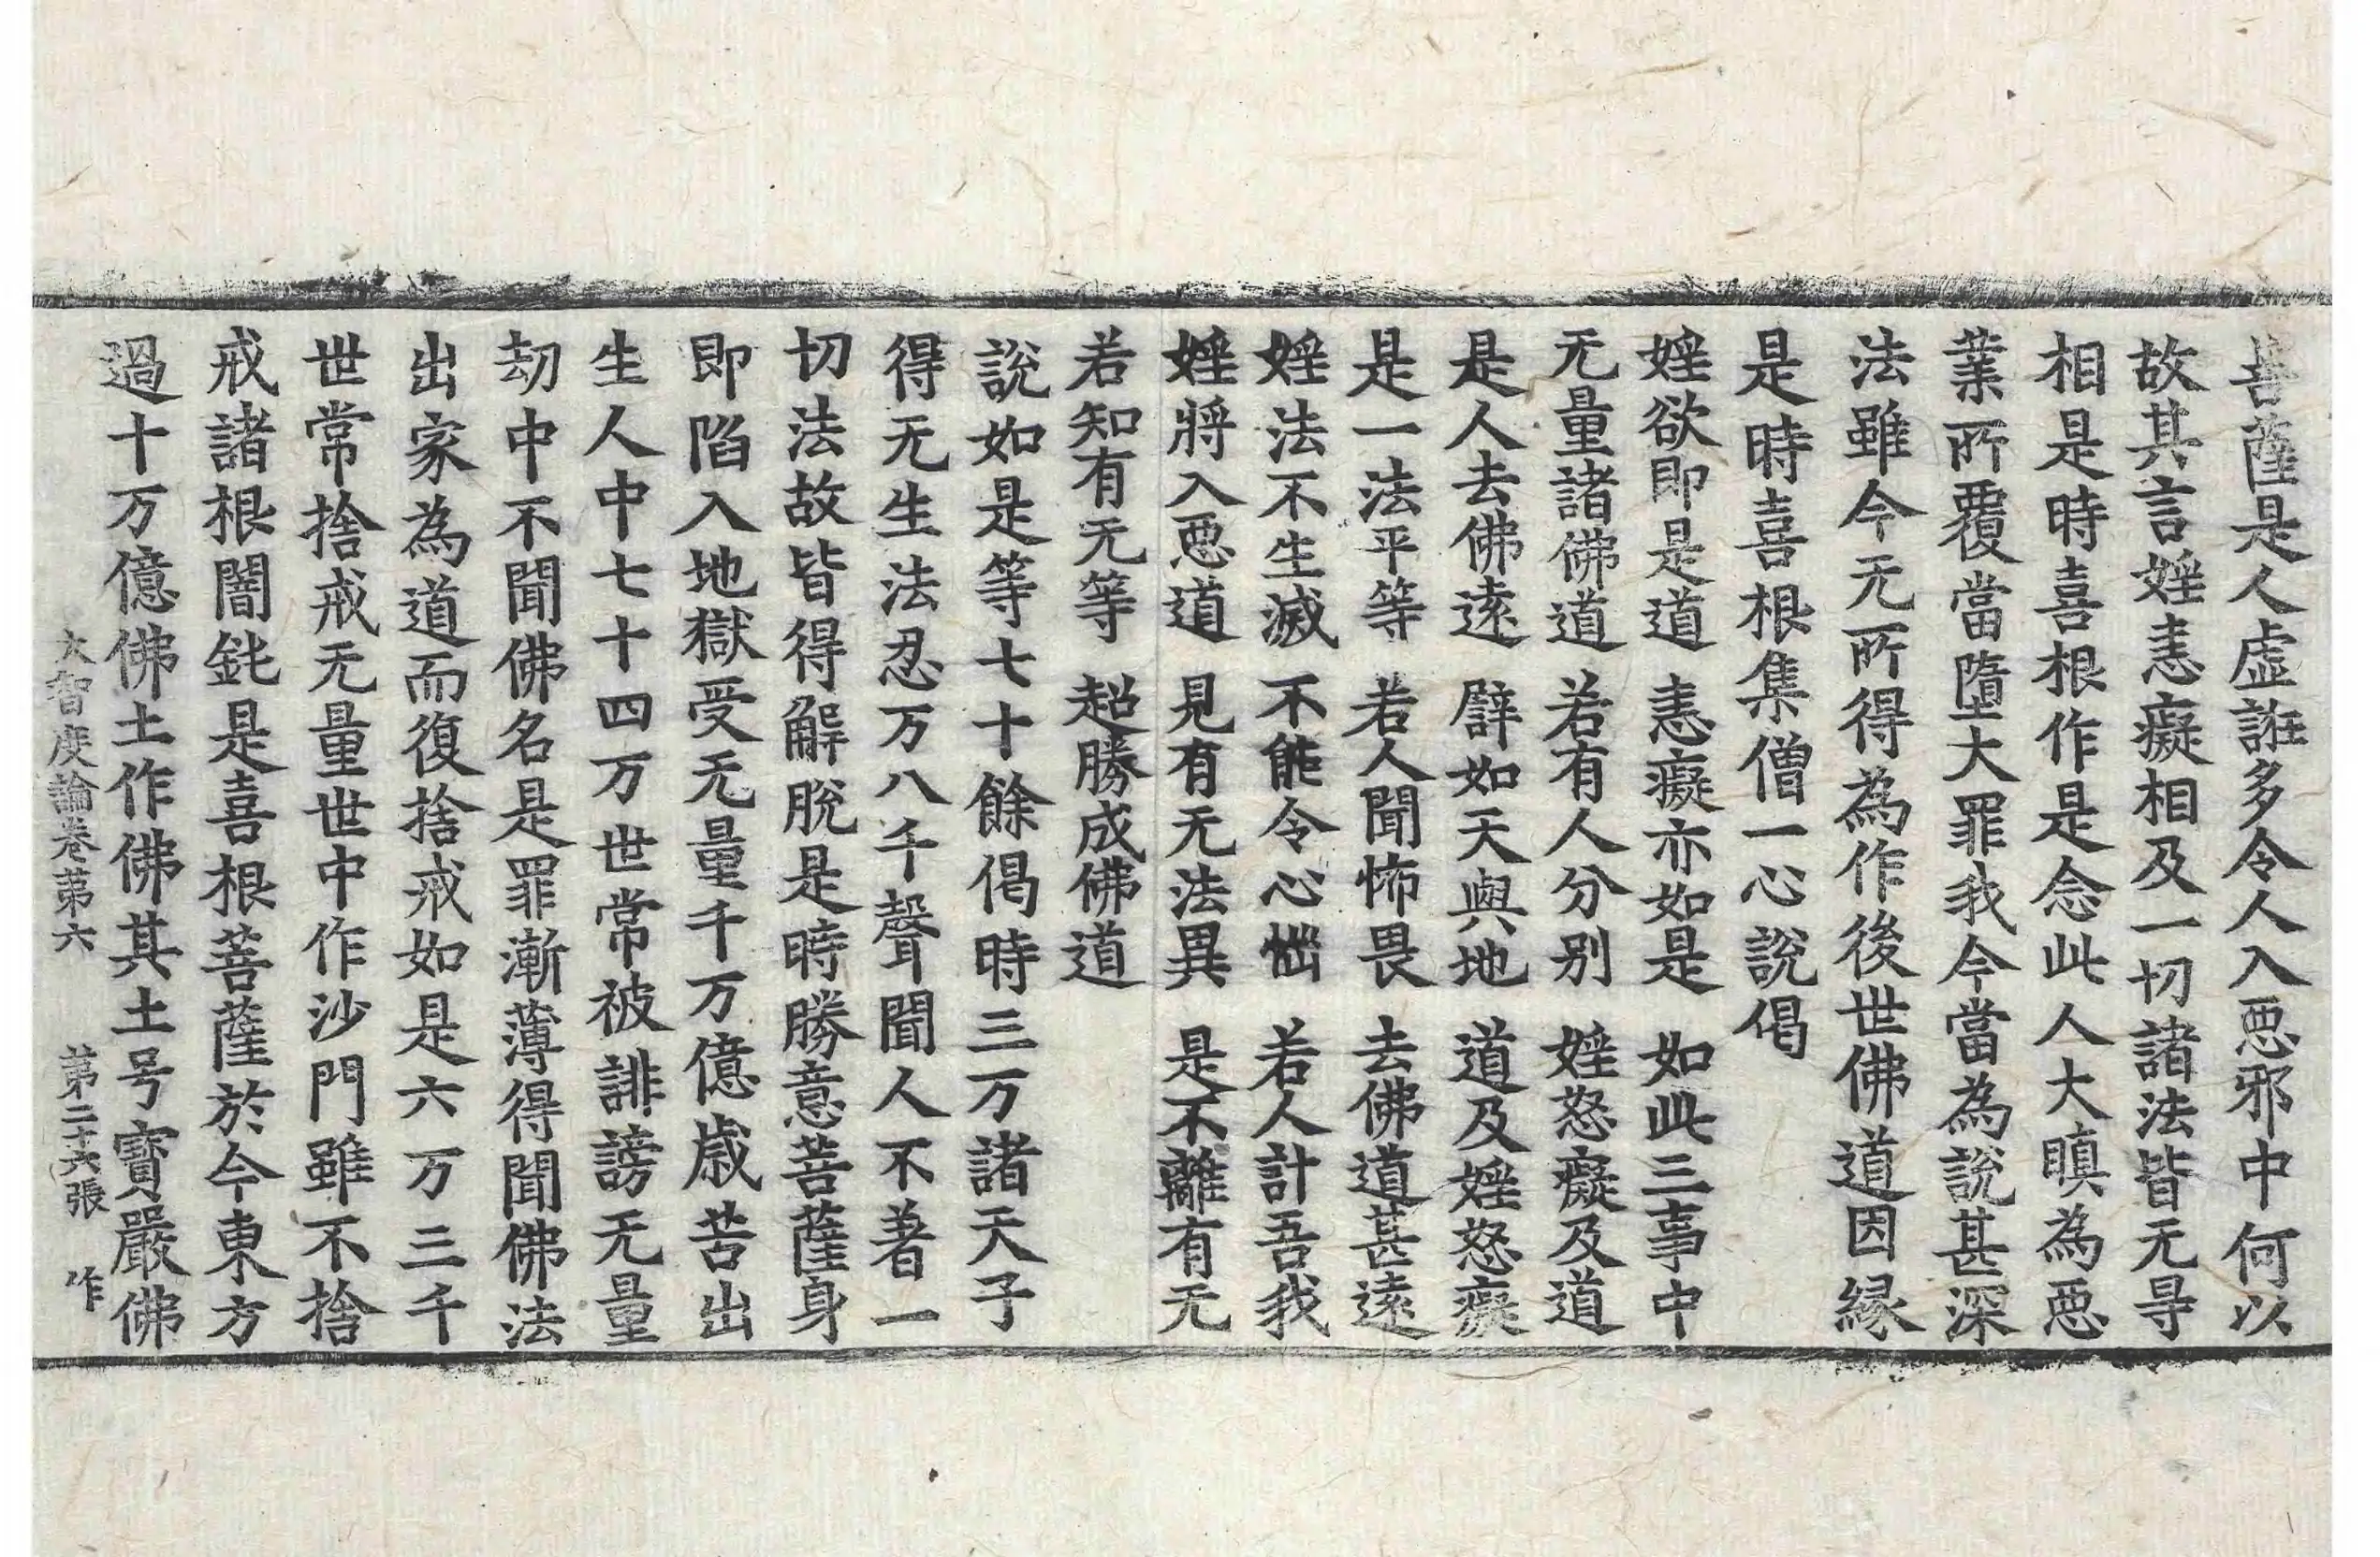 菩薩是人虛誑多令人入惡邪中何以
故其言婬恚癡相及一切諸法皆无㝵
相是時喜根作是念此人大瞋為惡
業所覆當墮大罪我今當為說甚深
法雖今无所得為作後世佛道因緣
是時喜根集僧一心說偈
婬欲即是道　恚癡亦如是　如此三事中
无量諸佛道　若有人分別　婬怒癡及道
是人去佛遠　辟如天與地　道及婬怒癡
是一法平等　若人聞怖畏　去佛道甚遠
婬法不生滅　不能令心惱　若人計吾我
婬將入惡道　見有无法異　是不離有无
若知有无等　超勝成佛道
說如是等七十餘偈時三万諸天子
得无生法忍万八千聲聞人不著一
切法故皆得解脫是時勝意菩薩身
即陷入地獄受无量千万億歲苦出
生人中七十四万世常被誹謗无量
劫中不聞佛名是罪漸薄得聞佛法
出家為道而復捨戒如是六万三千
世常捨戒无量世中作沙門雖不捨
戒諸根闇鈍是喜根菩薩於今東方
過十万億佛土作佛其土号寶嚴佛
大智度論卷苐六　苐二十六張　作